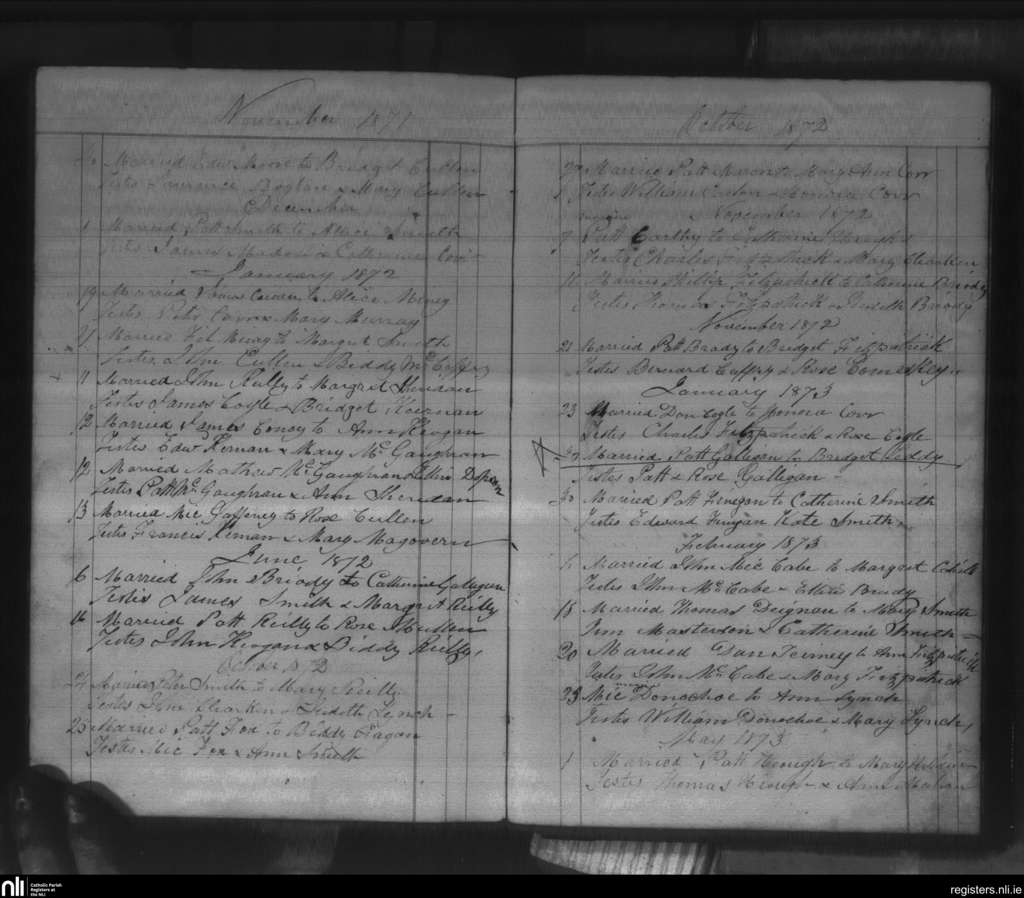 November 1871
Married Edw Moore to Bridget Cullen
Testes Laurence & Mary Cullen
December
1 Married Patt Smith to Alice Smith
Testes James & Catherine
January 1872
19 Married to Alice
Testes Peter & Mary Murray
Married to Margret Smith
Testes John Cullen & Biddy
11 Married John Reilly to Margret Sheridan
Testes James Cogle & Bridget Kiernan
12 Married James to Ann Keogan
Testes Edw Kernan & Mary Mc Gaughran
12 Married Mathew Mc Gaughran Ellen
Testes Patt Mc Gaughran & Ann Sheridan
13 Married Mic Gaffeney to Rose Cullen
Testes Francis Kernan & Mary Magovern
June 1872
6 Married John Briody to Catherine Galligan
Testes James Smith & Margret Reilly
16 Married Patt Reilly to Rose Mullen
Testes John Keogan & Biddy Reilly
October 1872
Married Peter Smith to Mary Reilly
Testes John Clarkin & Judith Lynch
25 Married Patt Fox to Biddy Fagan
Testes Mic Fox & Ann Smith
October 1872
Married Patt to Mary Ann Corr
Testes William & Honora Corr
November 1872
7 Patt Carthy to Catherine
Testes Charles Fitzpatrick & Mary Clarken
Married Philip Fitzpatrick to Catherine Briody
Testes Thomas Fitzpatrick & Judith Briody
November 1872
21 Married Patt Brady to Bridget Fitzpatrick
Testes Bernard Caffery & Rose Comeskey
January 1873
23 Married Dan Cogle to Honora Corr
Testes Charles Fitzpatrick & Rose Cogle
Married Patt Galligan to Bridget Leddy
Testes Patt & Rose Galligan
30 Married Patt Finegan to Catherine Smith
Testes Edward Finegan Kate Smith
February 1873
Married John Mic Cabe to Margret Cahill
Testes John Mc Cabe & Brady
18 Married Thomas Deignan to Mary Smith
Masterson & Catherine Smith
20 Married Dan Tierney to Ann Fitzpatrick
Testes John Mc Cabe & Mary Fitzpatrick
25 Mic Donochoe to Ann Lynch
Testes William Donochoe & Mary Lynch
May 1873
1 Married Patt Keough to Mary
Testes Thomas Keough & Ann
nli
Catholic Parish
Registers at
the NLI
registers.nli.ie